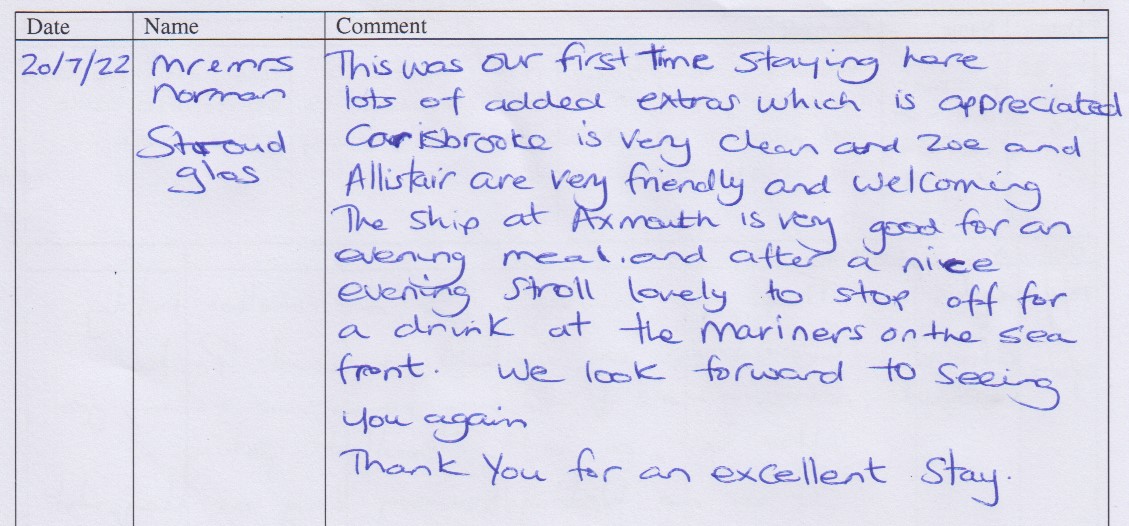 Date Name Comment
20/7/22 Mr & Mrs This was our first time staying here
Norman lots of added extras which is appreciated
Stroud Carisbrooke is very clean and Zoe and
glos Allistair are very friendly and welcoming
The Ship at Axmouth is very good for an
evening meal. and after a nice
evening stroll lovely to stop off for
a drink at the Mariners on the sea
front. We look forward to seeing
you again
Thank You for an excellent Stay.